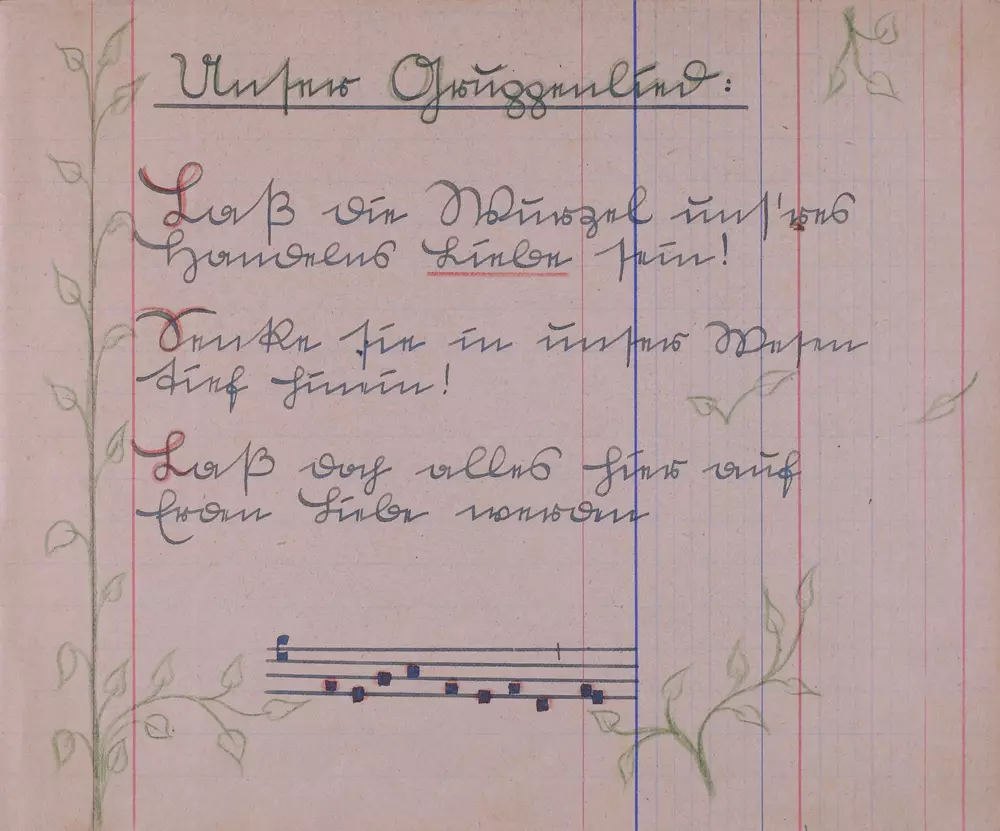 Unser Gruppenlied:
Laß die Wurzel uns'res
Handelns Liebe sein!
Senke sie in unser Wesen
tief hinein!
Laß doch alles hier auf
Erden Liebe werden